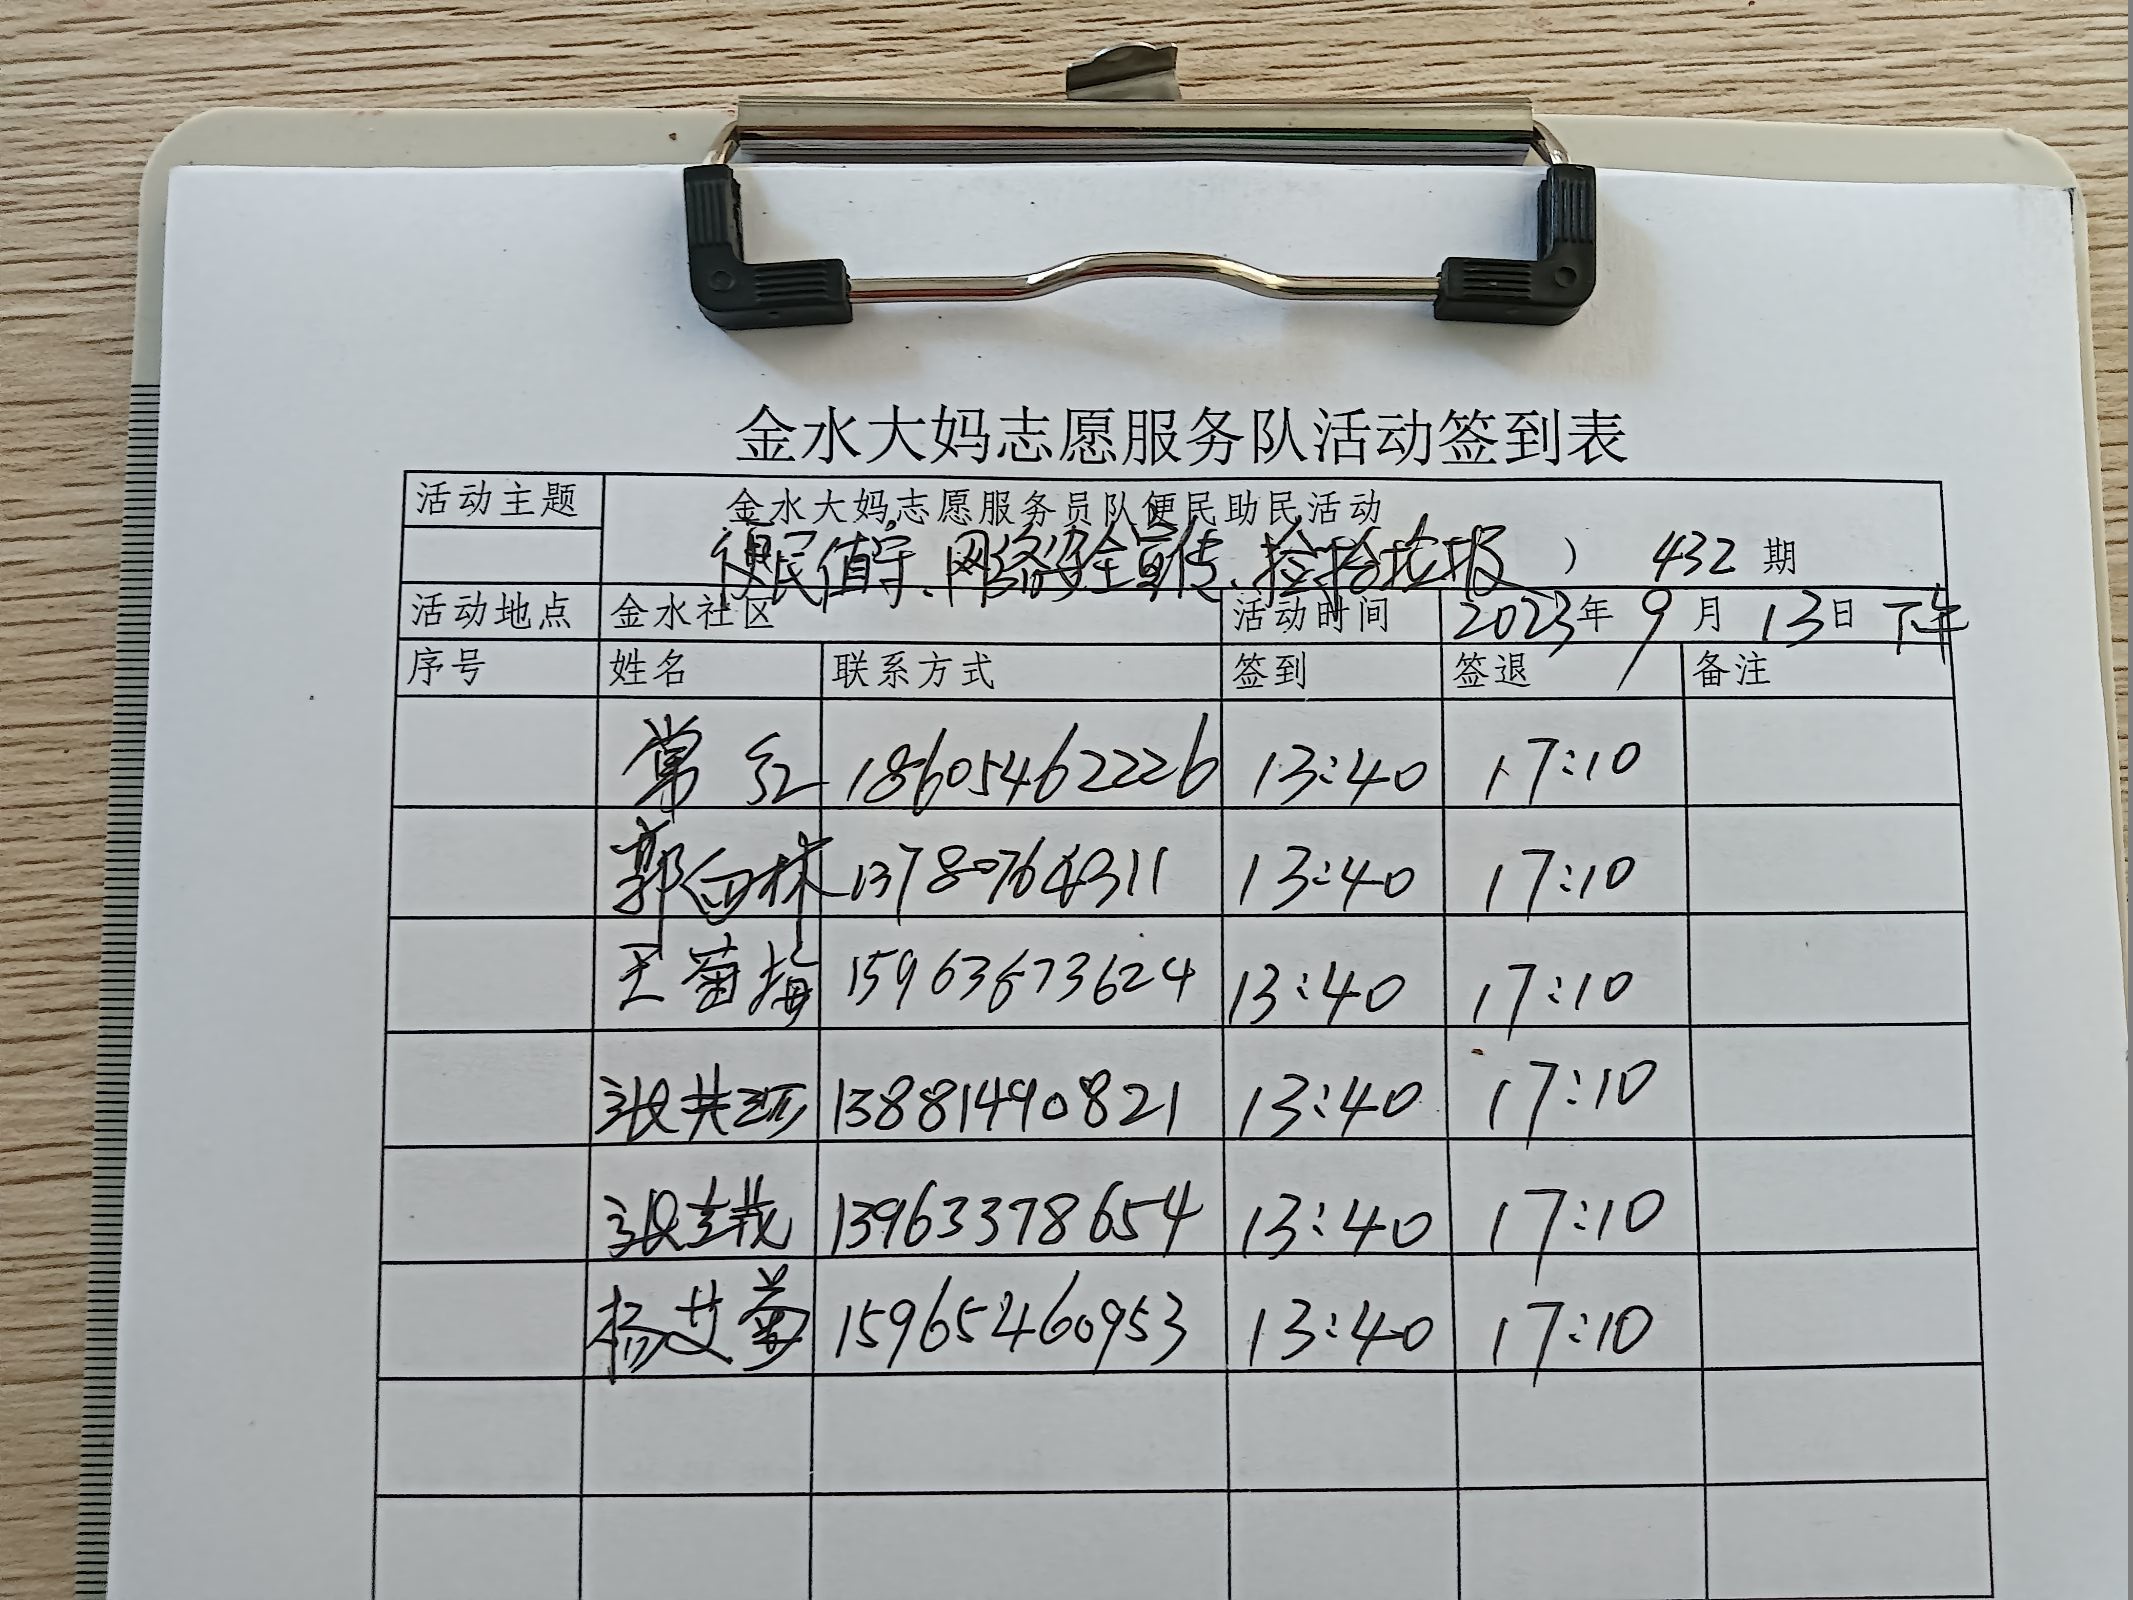 金水大妈志愿服务队活动签到表
活动主题 金水大妈志愿服务员队便民助民活动
便民值守、网络安全宣传、捡拾垃圾 ） 432 期
活动地点 金水社区 活动时间 2023年 9 月 13日 下午
序号 姓名 联系方式 签到 签退 备注
常红 18605462226 13:40 17:10
郭向林 13780764311 13:40 17:10
王菊梅 15963673624 13:40 17:10
张共环 13881490821 13:40 17:10
张 13963378654 13:40 17:10
杨艾菊 15965460953 13:40 17:10